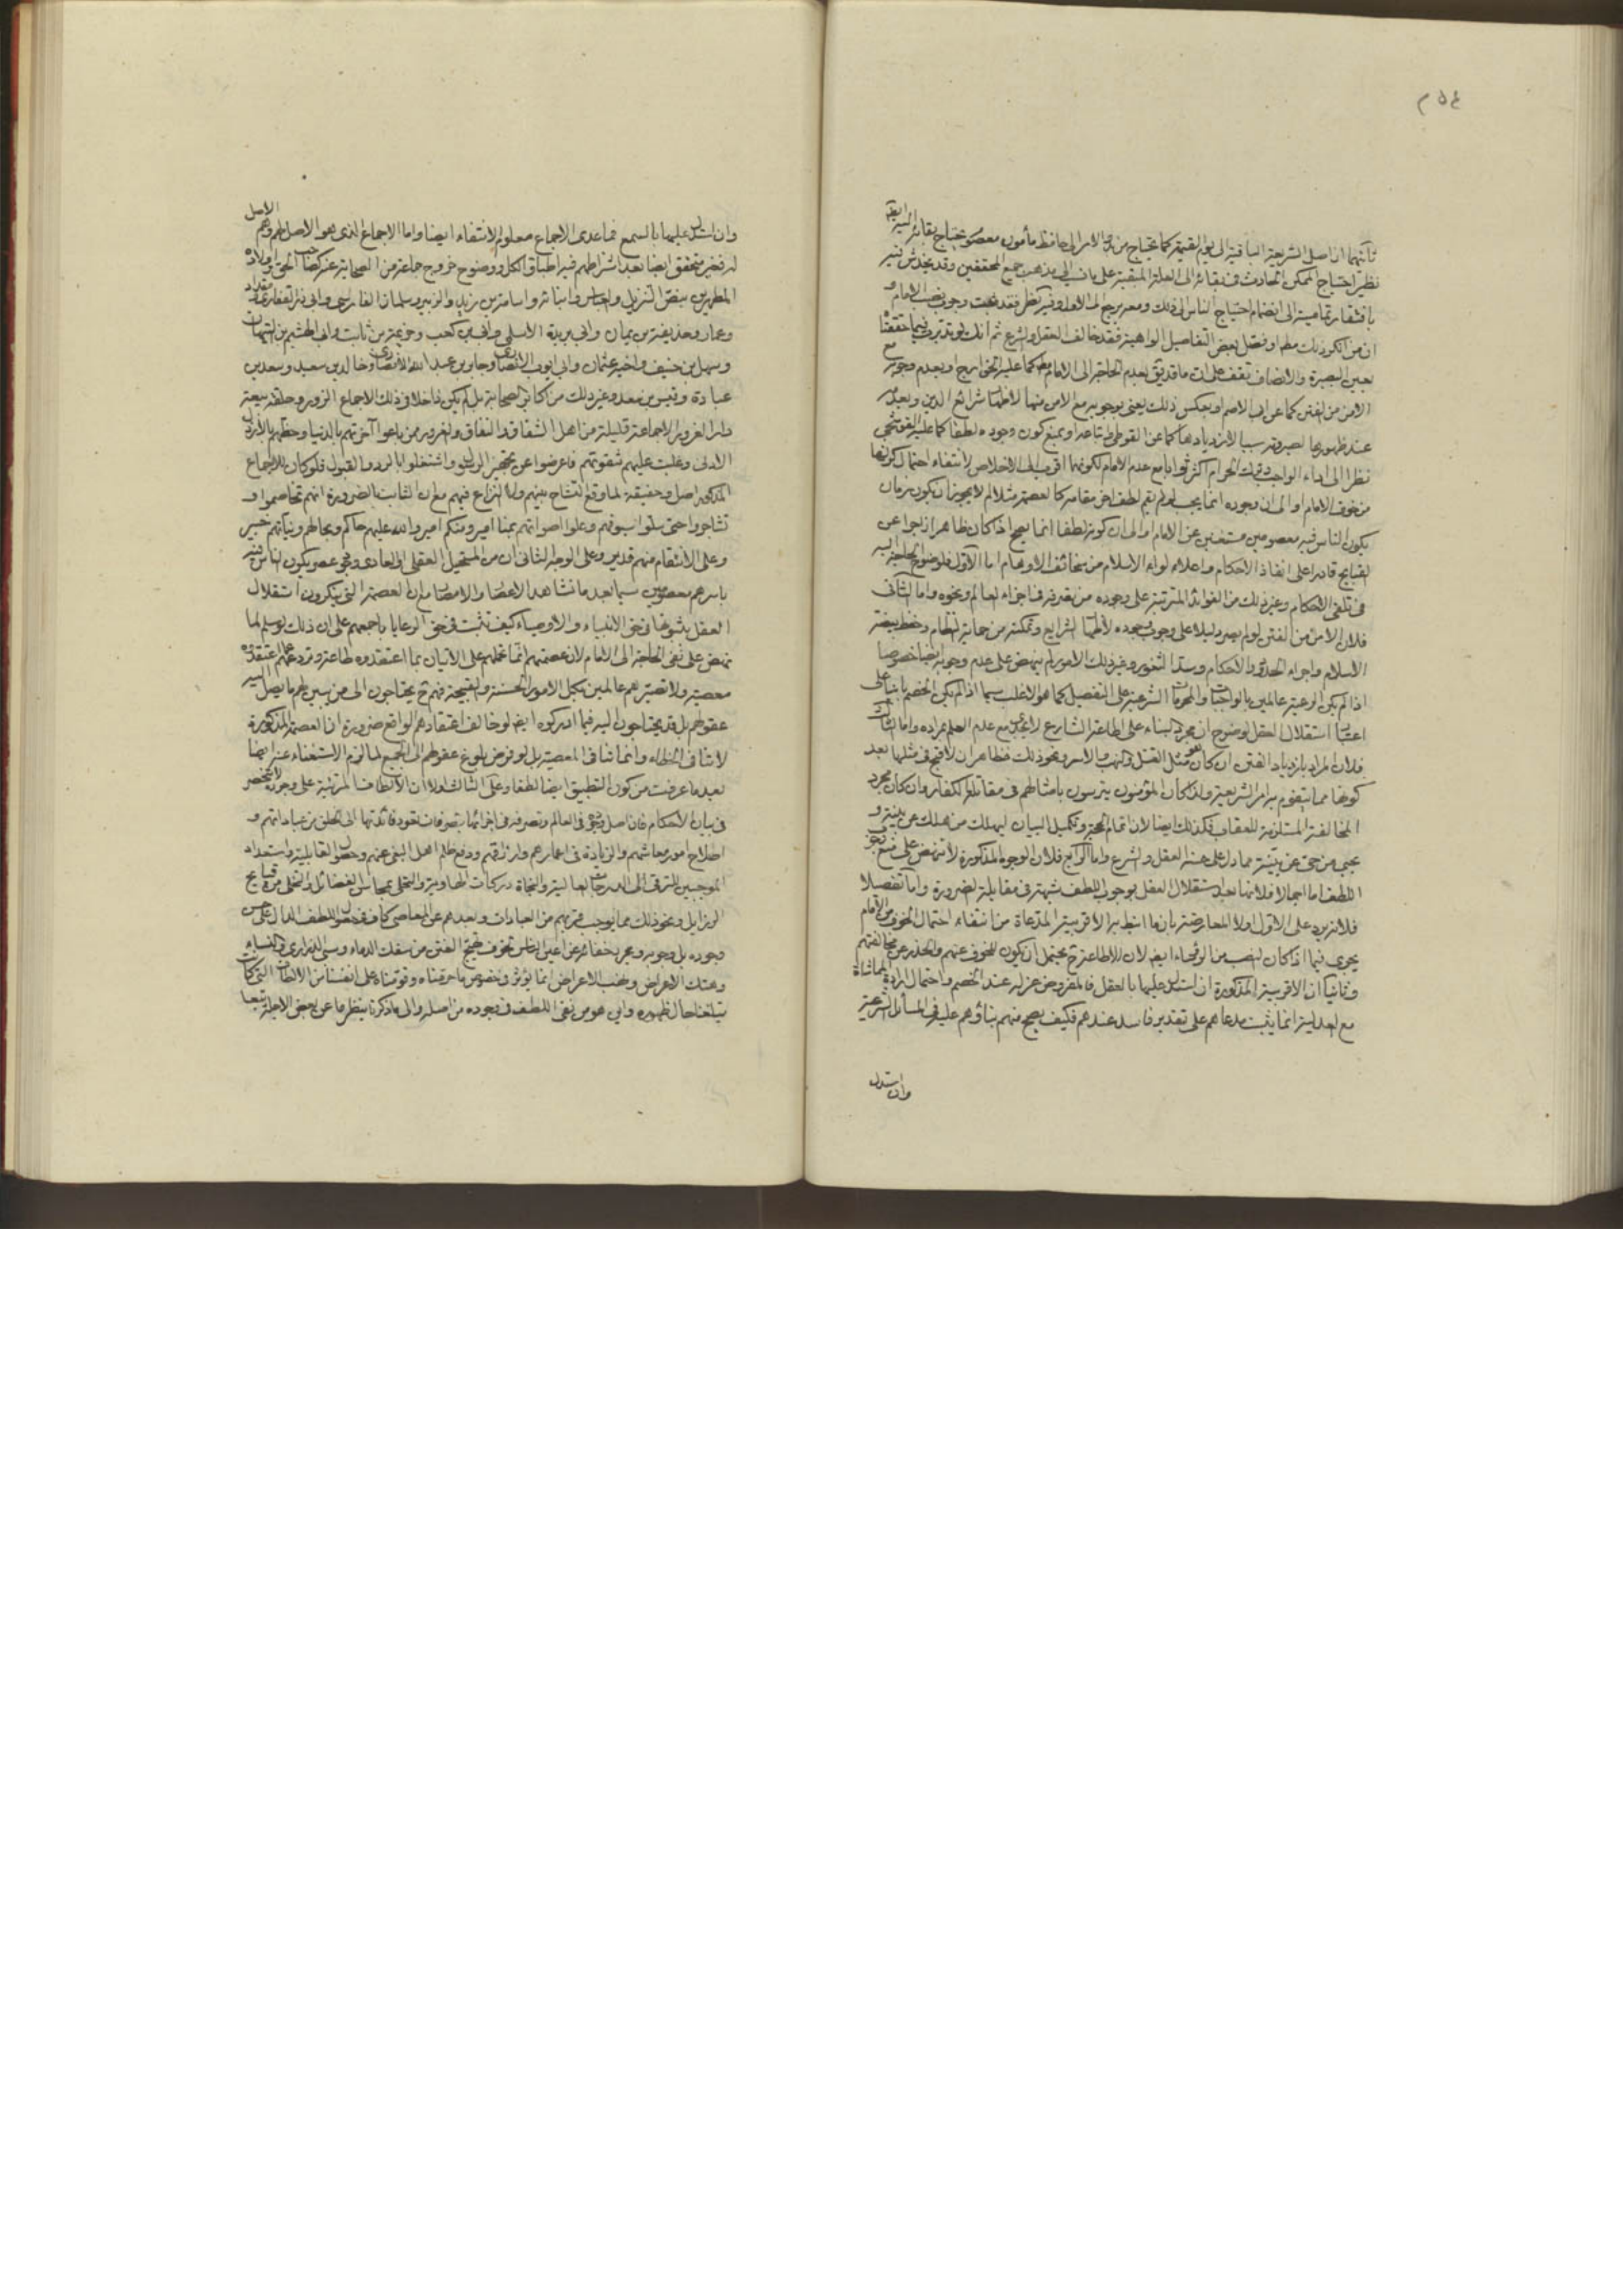 ٢٥٤
ثانيهما ان اصل الشريعة الباقية الى يوم القيمة كما يحتاج من بدو الامر الى حافظ مأمون معصوم يحتاج بقائه اليه ايضا
نظير احتياج الممكن الحادث في بقائه الى العلة المبقية على ما في الى مذهب جميع المحققين وقد يخدش فيه
بافتقار تماميته الى انضمام احتياج الناس الى ذلك ومعه يرجع الى الاول وفيه نظر فقد ثبت وجوب نصب الامام و
ان من انكر ذلك مطلقا او فصل بعض التفاصيل الواهية فقد خالف العقل والشرع ثم انك لو تدبرت فيما حققنا
بعين البصيرة والانصاف تقف على ان ما قد يق بعدم الحاجة الى الامام مط كما عليه الخوارج او بعدم وجوبه مع
الامن من الفتن كما عن ابي الاصم او بعكس ذلك يعني بوجوبه مع الامن منها لاظهار شرائع الدين وبعدمه
عند ظهورها لصيرورته سببا لازديادها كما عن القوطي واتباعه او بمنع كون وجوده لطفا كما عليه القوشجي
نظرا الى اداء الواجب وترك الحرام اكثر ثوابا مع عدم الامام لكونهما اقرب الى الاخلاص لانتفاء احتمال كونهما
من خوف الامام او الى ان وجوده انما يجب لو لم يقم لطف اخر مقامه كالعصمة مثلا لم لا يجوز ان يكون زمان
يكون الناس فيه معصومين مستغنين عن الامام او الى ان كونه لطفا انما يصح اذا كان ظاهرا زاجرا عن
القبايح قادرا على انفاذ الاحكام واعلاء لواء الاسلام من سخائف الاوهام اما الاول فلوضوح الحاجة اليه
في تلقى الاحكام وغير ذلك من الفوائد المترتبة على وجوده من تصرفه في اجزاء العالم ونحوه واما الثاني
فلان الامن من الفتن لو لم يصر دليلا على وجوب وجوده لاظهار الشرايع وتمكنه من حماية النظام وحفظ بيضة
الاسلام واجراء الحدود والاحكام وسد الثغور وغير ذلك الامور لم ينهض على عدم وجوبه ايضا خصوصا
اذا لم يكن الرعية عالمين بالواجبات والمحرمات الشرعية على التفصيل كما هو الاغلب سيما اذا لم يكن الخصم بانيا على
اعتبار استقلال العقل لوضوح ان مجرد البناء على اطاعة الشارع لا يجدي مع عدم العلم بمراده واما الثالث
فلان المراد بازدياد الفتن ان كان هو مثل القتل والنهب والاسر ونحو ذلك فظاهر ان لا قبح في مثلها بعد
كونها مما يتقوم به امر الشريعة ولذا كان المؤمنون يترسون بامثالهم في مقاتلة الكفار وان كان مجرد
المخالفة المستلزمة للعقاب فكذلك ايضا لان اتمام الحجة وتكميل البيان ليهلك من هلك عن بينة و
يحيى من حي عن بينة مما دل على حسنه العقل والشرع واما الرابع فلان الوجوه المذكورة لا تنهض على منع
اللطف اما اجمالا فلانها بعد استقلال العقل بوجوب اللطف شبهة في مقابلة الضرورة واما تفصيلا
فلانه يرد على الاول اولا المعارضة بانها
يجري فيما اذا كان النصب من الرؤساء ايضا لان الاطاعة ح يحتمل ان يكون للخوف عنهم والحذر عن مخالفتهم
وثانيا ان الاقربية المذكورة ان استدل عليها بالعقل فالمفروض عزله عند الخصم واحتمال ارادة المماشاة
مع العدلية انما يثبت مدعاهم على تقدير فاسد عندهم فكيف يصح منهم بناؤهم عليه في المسائل الشرعية
وان استدل
وان استدل عليها بالسمع فما عدى الاجماع معلوم الانتفاء ايضا واما الاجماع الذي هو الاصل لهم وهم الاصل
له فغير متحقق ايضا بعد اشتراطهم فيه اطباق الكل ووضوح خروج جماعة من الصحابة عنه كصاحب الحق واولاده
المطهرين بنص التنزيل والعباس وابنائه واسامة بن زيد والزبير وسلمان الفارسي وابي ذر الغفاري ومقداد
وعمار وحذيفة بن يمان وابي بريدة الاسلمي وابي بن كعب وخزيمة بن ثابت وابي الهثيم بن التيهان
وسهل بن حنيف واخيه عثمان وابي ايوب الانصاري وجابر بن عبد الله الانصاري وخالد بن سعيد وسعد بن
عبادة وقيس بن سعد وغير ذلك من اكابر الصحابة بل لم يكن داخلا في ذلك الاجماع الزور وحلقة بيعة
دار الغرور الا جماعة قليلة من اهل الشقاق والنفاق والغرور ممن باعوا آخرتهم بالدنيا وحظهم بالارذل
الادنى وغلبت عليهم شقوتهم فاعرضوا عن تجهيز الرسول واشتغلوا بالرد والقبول فلو كان للاجماع
المذكور اصل وحقيقة لما وقع التشاح بينهم ولا النزاع فيهم مع ان الثابت بالضرورة انهم تخاصموا و
تشاجروا حتى سلوا سيوفهم وعلوا اصواتهم بمنا امير ومنكم امير والله عليهم حاكم وبحالهم ونياتهم خبير
وعلى الانتقام منهم قدير وعلى الوجه الثاني ان من المستحيل العقلي او العادي وقوع عصر يكون الناس فيه
باسرهم معصومين سيما بعد ما نشاهد الاعصار والامصار مع ان العصمة التي ينكرون استقلال
العقل بثبوتها في حق الانبياء والاوصياء كيف تثبت في حق الرعايا باجمعهم على ان ذلك لو سلم لما
نهض على نفي الحاجة الى الامام لان عصمتهم انما تحملهم على الاتيان بما اعتقدوه طاعة وتردعهم عما اعتقدوه
معصية ولا تصيرهم عالمين بكل الامور الحسنة والقبيحة فهم ح يحتاجون الى من يبين لهم ما يصل اليه
عقولهم بل قد يحتاجون اليه فيما ادركوه ايضا لو خالف اعتقادهم الواقع ضرورة ان العصمة المذكورة
لا تنافي الخطاء وانما تنافي المعصية بل لو فرض بلوغ عقولهم الى الجميع لما لزم الاستغناء عنه ايضا
بعد ما عرفت من كون التطبيق ايضا لطفا وعلى الثالث اولا ان الالطاف المرتبة على وجوده لا تنحصر
في بيان الاحكام فان اصل وجوده في العالم وتصرفه في اجزائها بتصرفات تعود فائدتها الى الخلق من عباداتهم و
اصلاح امور معاشهم والزيادة في اعمارهم وارزاقهم ودفع ظلم اهل البغي عنهم وحصول القابلية واستعداد
الموجبين للترقي الى الدرجات العالية والنجاة دركات الهاوية والتحلي بمحاسن الفضائل والتخلي من قبايح
الرزايل ونحو ذلك مما يوجب قربهم من العبادات وبعدهم عن المعاصي كاف في حصول اللطف الدال على حسن
وجوده بل وجوبه ومجرد خفائه عن اعين الناس لخوف تهيج الفتن من سفك الدماء وسبي الذراري والنساء
وهتك الاعراض ونصب الاعراض انما يؤثر في خصوص ما حرمناه وفوتناه على انفسنا من الالطاف التي كانت
تبلغنا حال ظهوره واين هو من نفي اللطف في وجوده من اصله والى ما ذكرنا ينظر ما عن بعض الاجلة تبعا